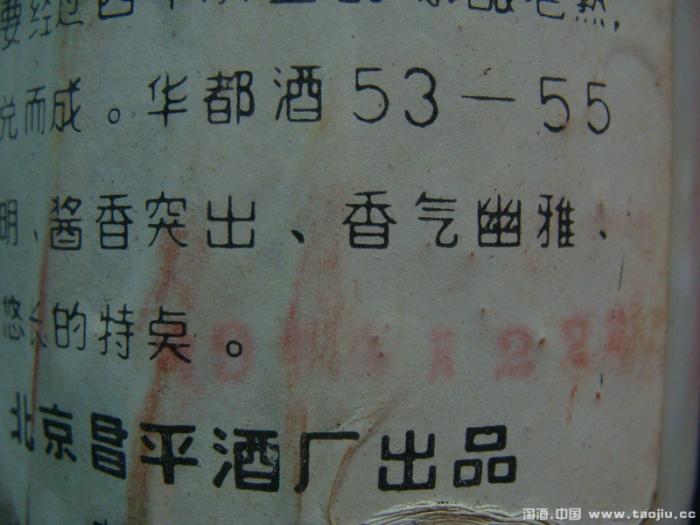 要经过四
兑而成。华都酒53—55
明、酱香突出、香气幽雅、
悠长的特点。
北京昌平酒厂出品
淘酒.中国 www.taojiu.cc